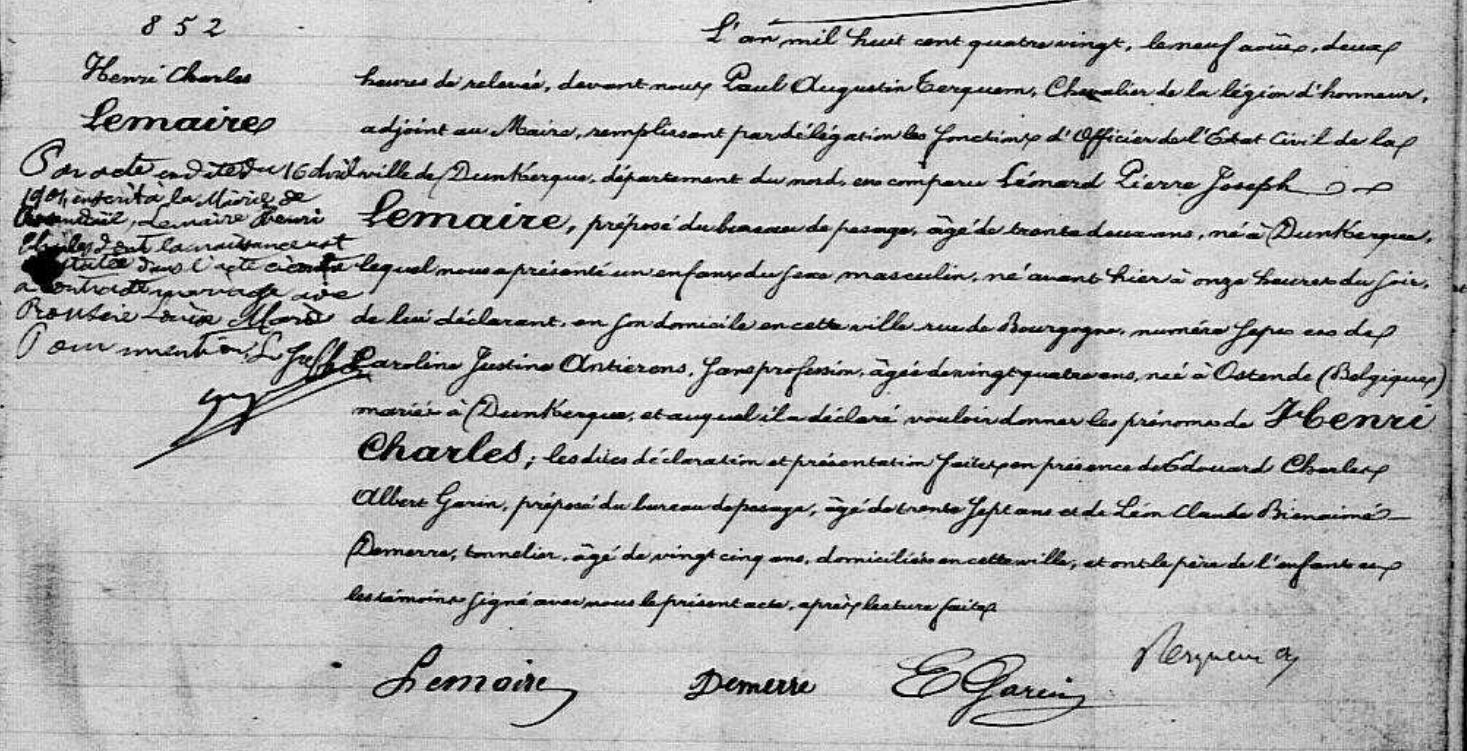 852
Henri Charles
Lemaire
Par acte en date du 16 avril
1904, inscrit à la Mairie de
Rosendaël, Lemaire Henri
Charles dont la naissance est
constatée dans l'acte ci-contre
a contracté mariage avec
Marie
Pour mention, Le Greffier
L'an mil huit cent quatre vingt, le neuf août, deux
heures de relevée, devant nous Paul Augustin Terquem, Chevalier de la légion d'honneur,
adjoint au Maire, remplissant par délégation les fonctions d'Officier de l'Etat Civil de la
ville de Dunkerque, département du nord, est comparu Léonard Pierre Joseph
Lemaire, préposé du bureau de pesage, âgé de trente deux ans, né à Dunkerque,
lequel nous a présenté un enfant du sexe masculin, né avant hier à onze heures du soir,
de lui déclarant, en son domicile en cette ville rue de Bourgogne, numéro sept et de
Caroline Justine Antierens, sans profession, âgée de vingt quatre ans, née à Ostende (Belgique)
mariés à Dunkerque, et auquel il a déclaré vouloir donner les prénoms de Henri
Charles; les dites déclaration et présentation faites en présence de Edouard Charles
Albert Garin, préposé du bureau de pesage, âgé de trente sept ans et de Léon Claude Bienaimé
Demerre, tonnelier, âgé de vingt cinq ans, domiciliés en cette ville, et ont le père de l'enfant et
les témoins signé avec nous le présent acte, après lecture faite
Lemaire Demerre E Garin Terquem a